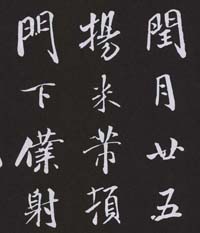 閏月廿五
揚米芾頓
門下僕射